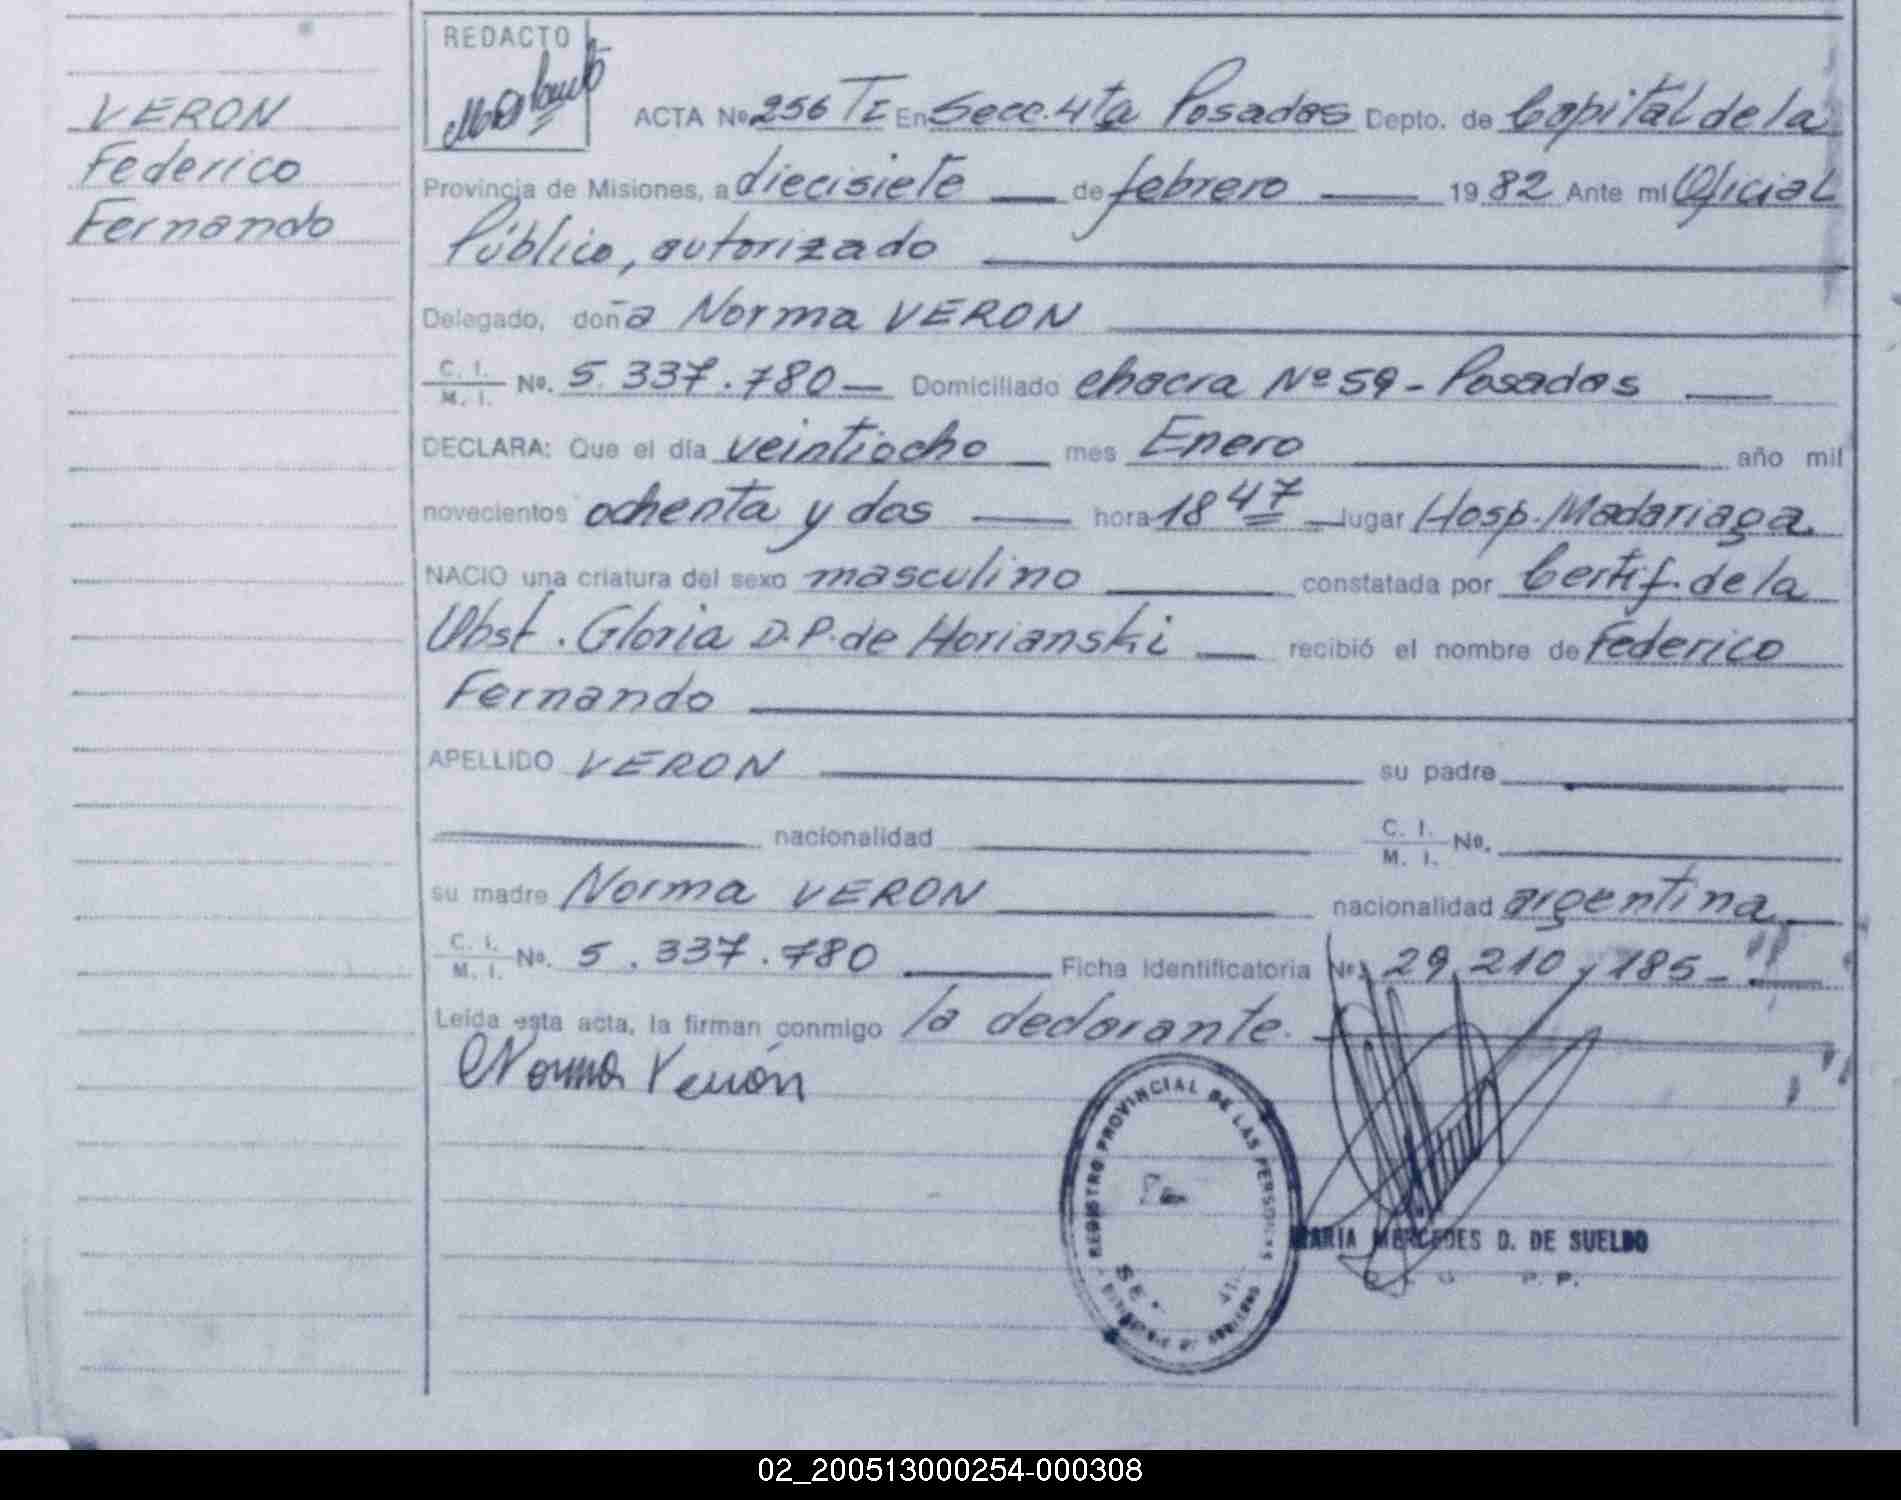 VERON
Federico
Fernando
REDACTO
ACTA No 256 TI En Secc. 4ta Posadas Depto. de Capital de la
Provincia de Misiones, a diecisiete de febrero 1982 Ante mi Oficial
Público, autorizado
Delegado, doña Norma VERON
C. I. / M. I. No. 5.337.780 Domiciliado chacra Nº 59 - Posadas
DECLARA: Que el día veintiocho mes Enero año mil
novecientos ochenta y dos hora 18 47 lugar Hosp. Madariaga.
NACIO una criatura del sexo masculino constatada por Certif. de la
Obst. Gloria D.P. de Horianski recibió el nombre de Federico
Fernando
APELLIDO VERON su padre
nacionalidad C. I. / M. I. No.
su madre Norma VERON nacionalidad argentina
C. I. / M. I. No. 5.337.780 Ficha Identificatoria No. 29.210.185-
Leída esta acta, la firman conmigo la declarante.
Norma Verón
REGISTRO PROVINCIAL DE LAS PERSONAS
MARIA MERCEDES D. DE SUELDO
02_200513000254-000308